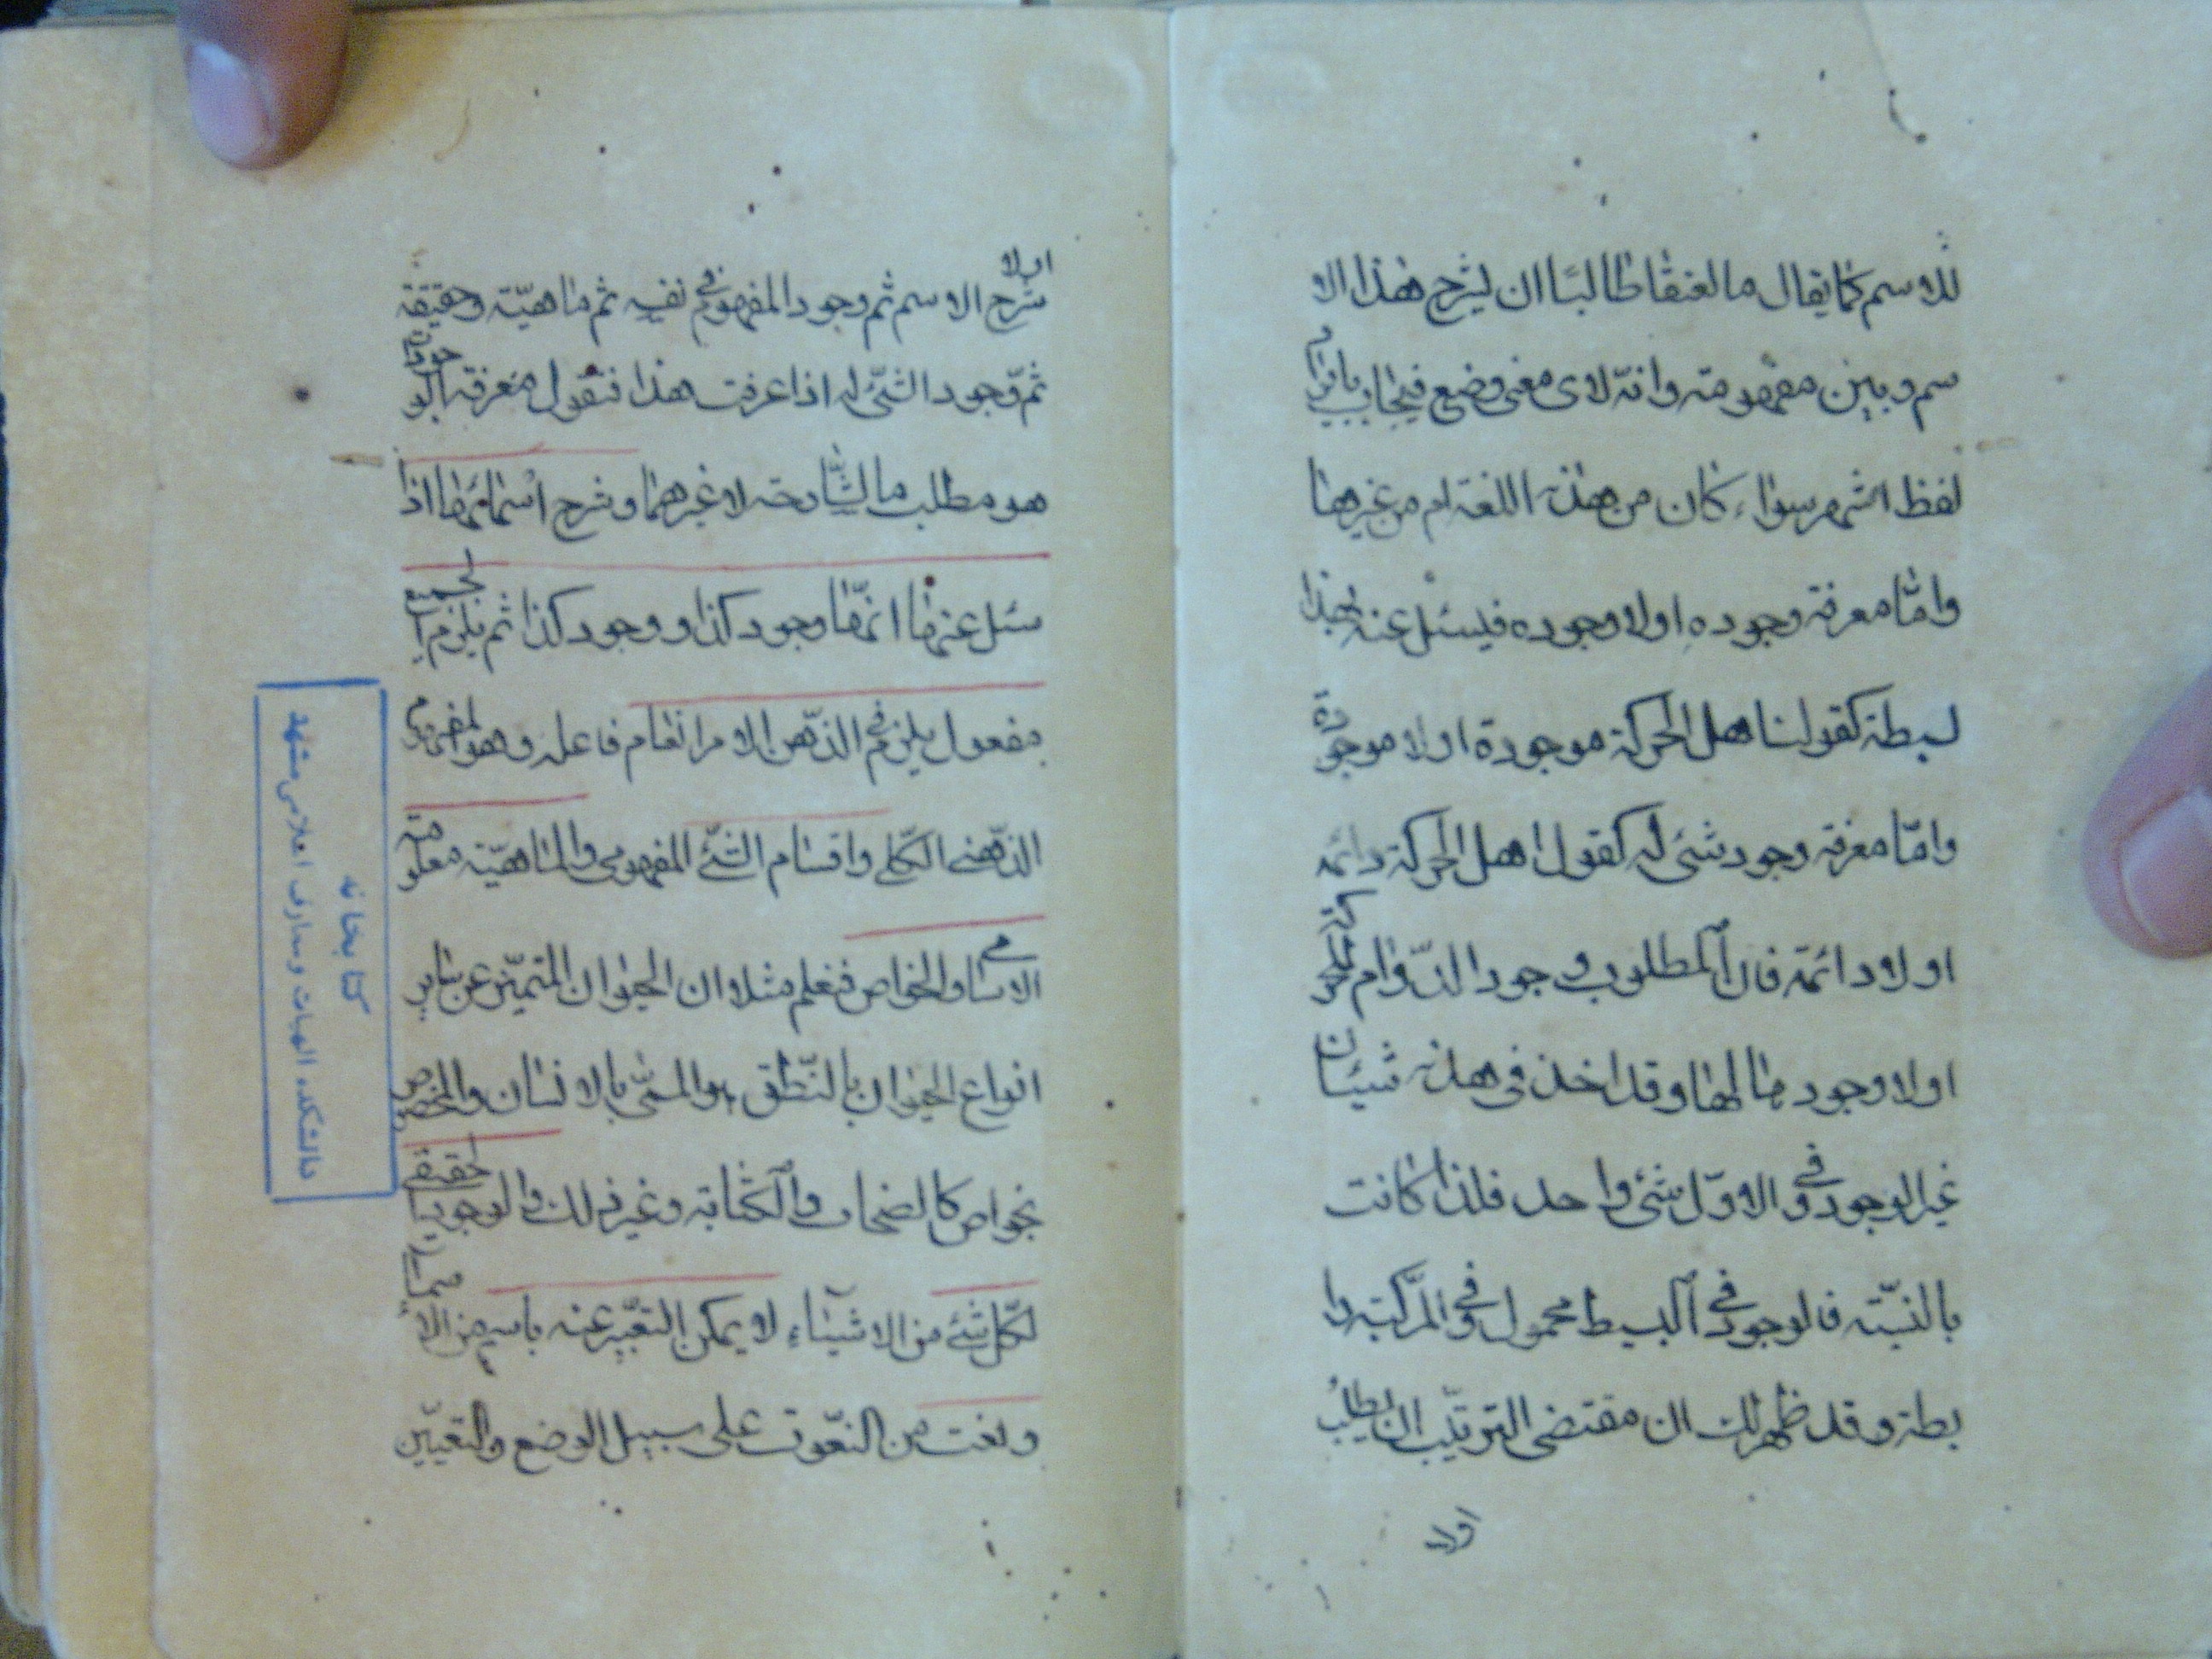 للاسم كما يقال ما العنقا طالبًا ان يشرح هذا الا
سم و يبين مفهومته وانّه لاى معنى وضع فيجاب بايراد
لفظ اشهر سواء كان من هذه اللغة ام من غيرها
وامّا معرفة وجوده او لا وجوده فيسئل عنه بهذا
لبسيطة كقولنا هل الحركة موجودة او لا موجودة
وامّا معرفة وجود شئ له كقول اهل الحركة دائمة
او لا دائمة فان المطلوب وجود الدّوام للحركة
او لا وجود ما لها وقد اخذ فى هذه شيئان
غير الوجود و فى الاوّل شئ واحد فلذا كانت
بالنسبّة فالوجود فى البسيط محمول و فى المركّبة را
بطة و قد ظهر لك ان مقتضى الترتيب ان يطلب
اولا
اولا
شرح الاسم ثم وجود المفهوم فى نفسه ثم ماهيّة وحقيقة
ثمّ وجود الشّئ له اذا عرفت هذا فنقول معرفة الوجود
هو مطلب ما الشّارحة لا غيرهما و شرح اسمائها اذا
سئل عنها انّها وجود كذا و وجود كذا ثم يلزم الجميع
مفعول يلزم فى الذّهن الامر العام فاعله و هو المفهوم
الذّهنى الكلّى واقسام الشّئ المفهومى والماهيّة معلومة
الاسامى والخواص فنعلم مثلا ان الحيوان المتميّز عن ساير
انواع الحيوان بالنّطق هو المسمّى بالانسان والمخصوص
بخواص كالضحاك والكتابة وغير ذلك والوجود الحقيقى
لكلّ شئ من الاشياء لا يمكن التعبّير عنه باسم من الاسماء
و نعت من النّعوت على سبيل الوضع والتعيّين
كتابخانه
دانشكده الهيات و معارف اسلامى مشهد